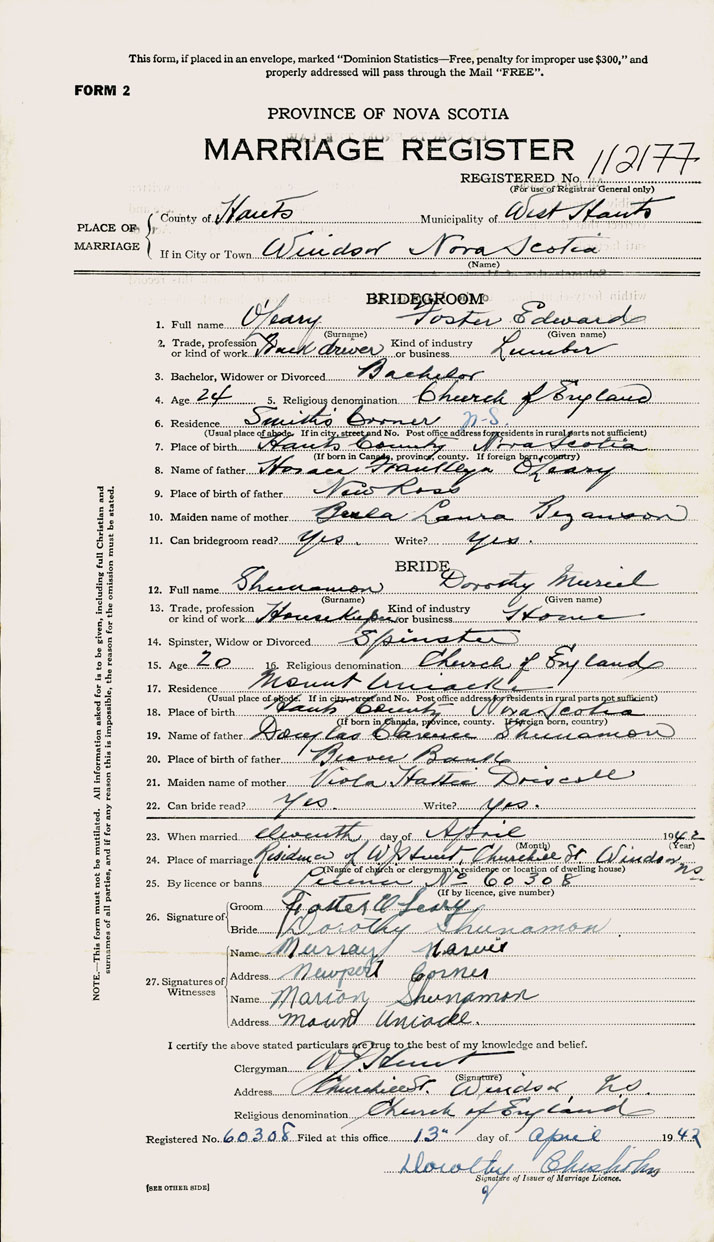 This form, if placed in an envelope, marked "Dominion Statistics—Free, penalty for improper use $300," and
properly addressed will pass through the Mail "FREE".
FORM 2
PROVINCE OF NOVA SCOTIA
MARRIAGE REGISTER
REGISTERED No. 112177
(For use of Registrar General only)
PLACE OF MARRIAGE
County of Hants Municipality of West Hants
If in City or Town Windsor Nova Scotia
(Name)
BRIDEGROOM
1. Full name O'Leary Foster Edward
(Surname) (Given name)
2. Trade, profession or kind of work Truck driver Kind of industry or business Lumber
3. Bachelor, Widower or Divorced Bachelor
4. Age 24 5. Religious denomination Church of England
6. Residence Smith's Corner N.S.
(Usual place of abode. If in city, street and No. Post office address for residents in rural parts not sufficient)
7. Place of birth Hants County Nova Scotia
(If born in Canada, province, county. If foreign born, country)
8. Name of father Horace O'Leary
9. Place of birth of father New Ross
10. Maiden name of mother Laura Bezanson
11. Can bridegroom read? Yes. Write? Yes.
BRIDE
12. Full name Shunamon Dorothy Muriel
(Surname) (Given name)
13. Trade, profession or kind of work Housekeeper Kind of industry or business Home
14. Spinster, Widow or Divorced Spinster
15. Age 20 16. Religious denomination Church of England
17. Residence Mount Uniacke
(Usual place of abode. If in city, street and No. Post office address for residents in rural parts not sufficient)
18. Place of birth Hants County Nova Scotia
(If born in Canada, province, county. If foreign born, country)
19. Name of father Douglas Clarence Shunamon
20. Place of birth of father Beaver Bank
21. Maiden name of mother Viola Hattie Driscoll
22. Can bride read? Yes. Write? Yes.
23. When married eleventh day of April 1942
(Month) (Year)
24. Place of marriage Residence of W J Hunt, Churchill St. Windsor N.S.
(Name of church or clergyman's residence or location of dwelling house)
25. By licence or banns Licence No 60308
(If by licence, give number)
26. Signature of
Groom Foster O'Leary
Bride Dorothy Shunamon
27. Signatures of Witnesses
Name Murray Harvie
Address Newport Corner
Name Marion Shunamon
Address Mount Uniacke.
I certify the above stated particulars are true to the best of my knowledge and belief.
Clergyman W J Hunt
(Signature)
Address Churchill St. Windsor N.S.
Religious denomination Church of England
Registered No. 60308 Filed at this office 13" day of April 1942
Dorothy Chisholm
Signature of Issuer of Marriage Licence.
[SEE OTHER SIDE]
NOTE.—This form must not be mutilated. All information asked for is to be given, including full Christian and
surnames of all parties, and if for any reason this is impossible, the reason for the omission must be stated.